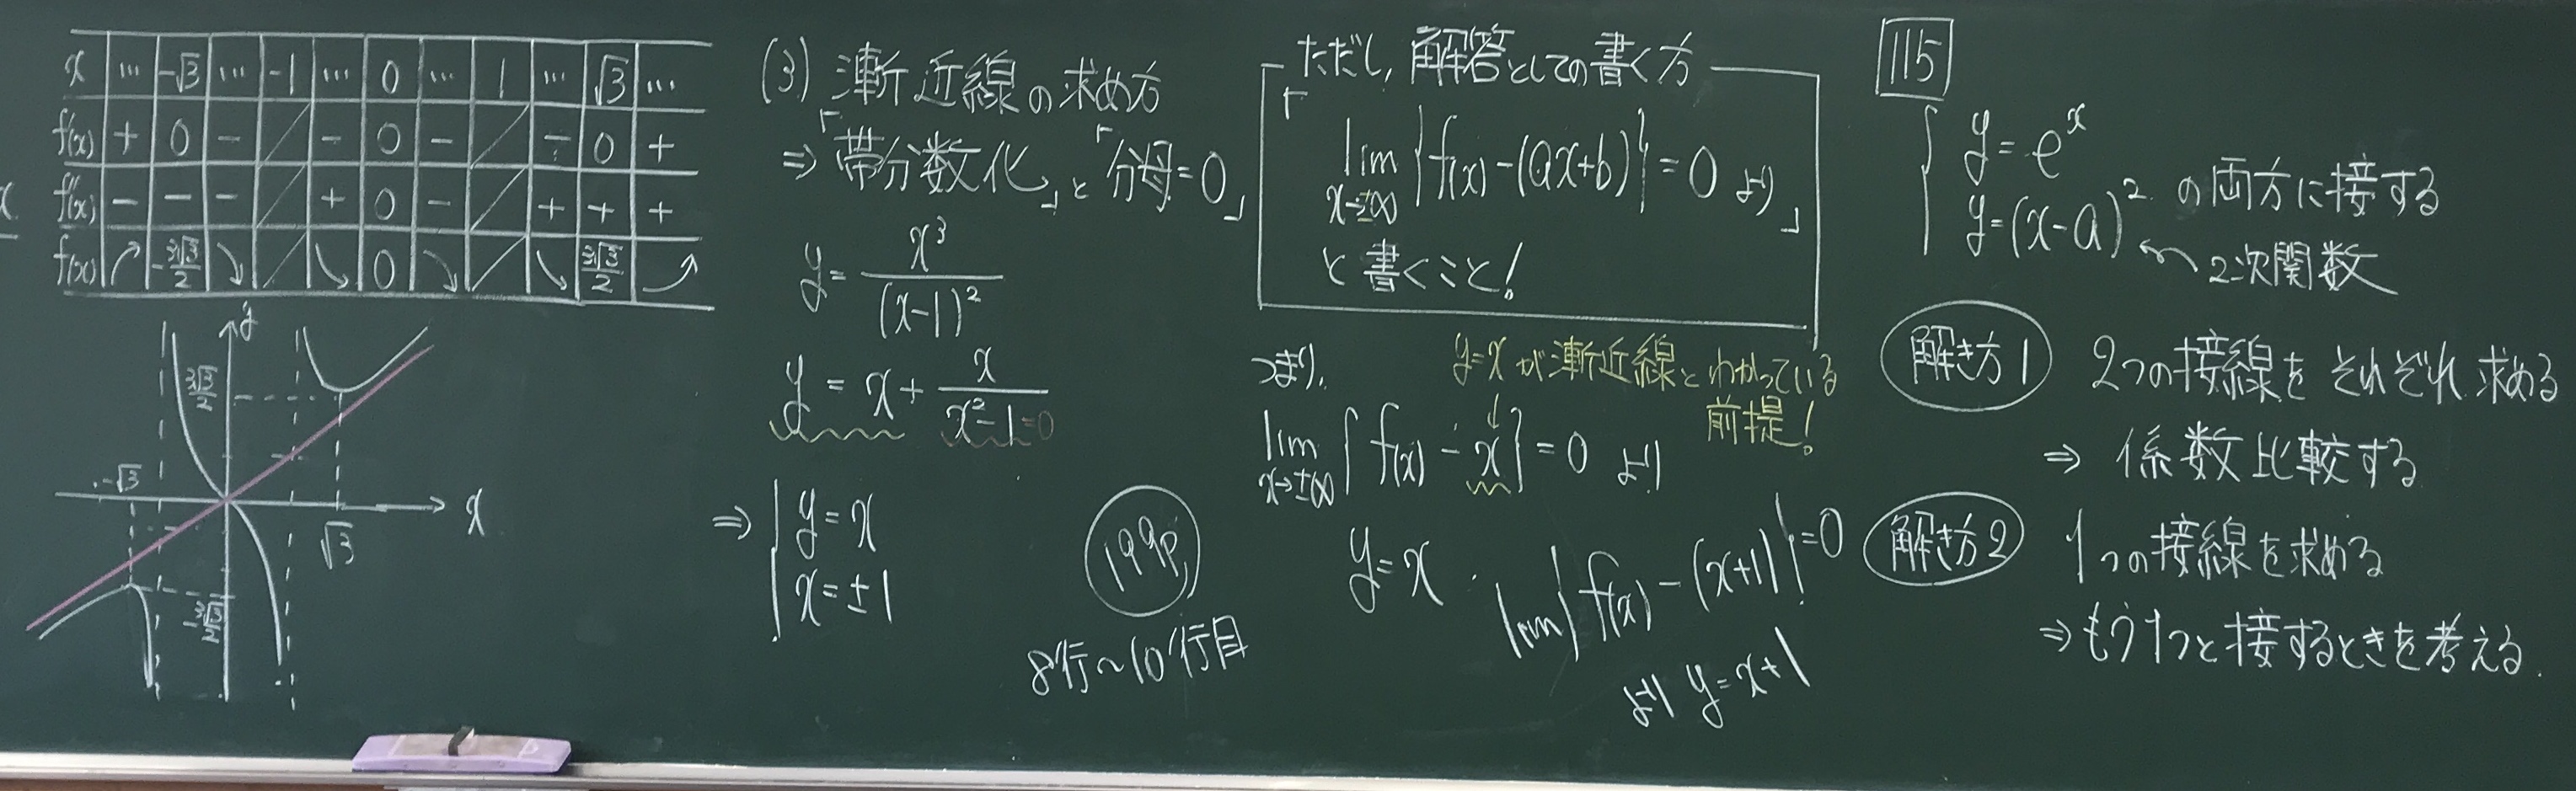 x … -√3 … -1 … 0 … 1 … √3 …
f'(x) + 0 - / - 0 - / - 0 +
f''(x) - - - / + 0 - / + + +
f(x) ↗ -3√3/2 ↘ / ↘ 0 ↘ / ↘ 3√3/2 ↗
x
y
3√3/2
-√3
√3
x
-3√3/2
(3) 漸近線の求め方
⇒「帯分数化」と「分母=0」
y = x³/(x-1)²
y = x + x/(x²-1) =0
⇒ { y=x
x=±1
199p
8行~10行目
ただし, 解答としての書く方
「lim x→±∞ {f(x)-(ax+b)}=0 より」
と書くこと!
つまり,
y=xが漸近線とわかっている
前提!
↓
lim x→±∞ {f(x)-x}=0 より
y=x
lim{f(x)-(x+1)}=0
より y=x+1
115
{ y=eˣ
y=(x-a)² の両方に接する
2次関数
解き方1 2つの接線をそれぞれ求める
⇒ 係数比較する
解き方2 1つの接線を求める
⇒もう1つと接するときを考える.